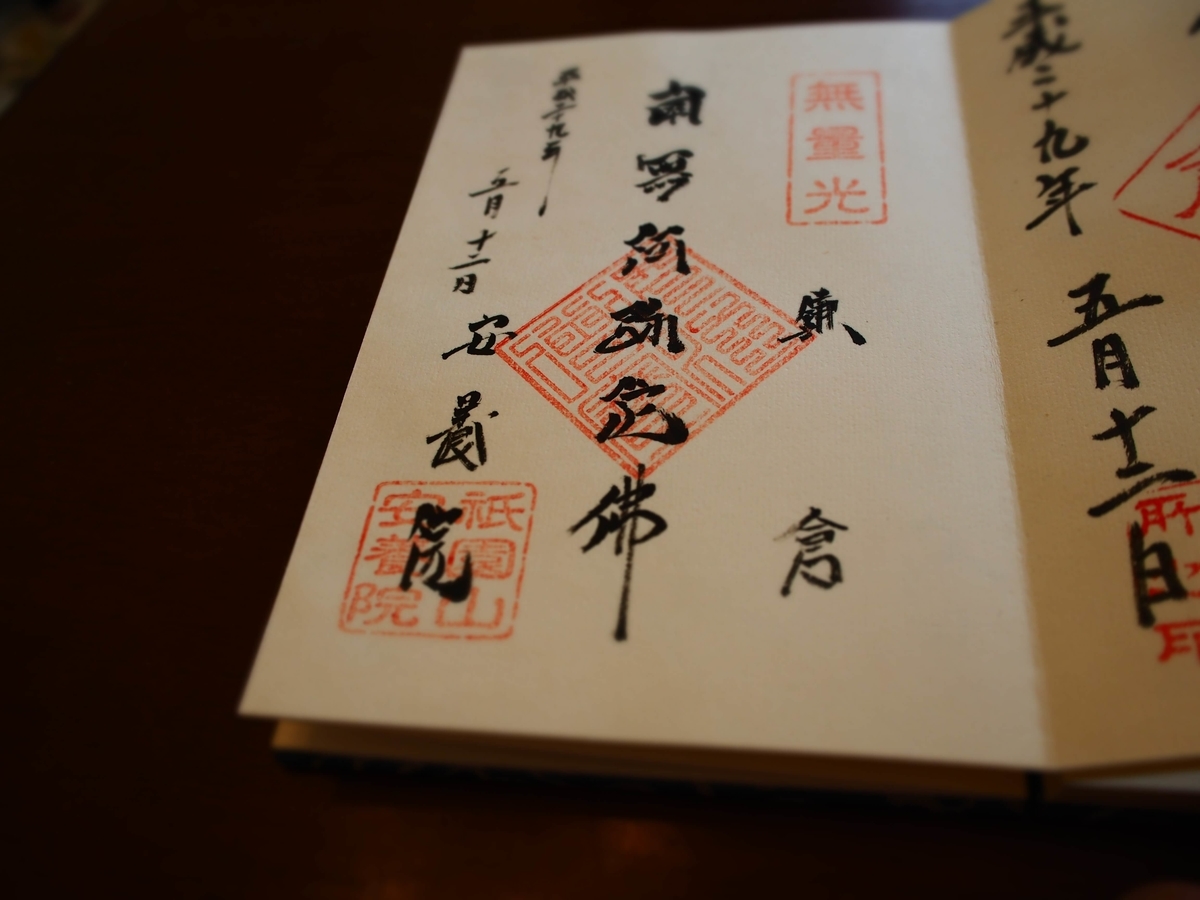 平成二十九年
五月十二日
無量光
鎌倉
南無阿弥陀佛
平成二十九年
五月十二日
安養院
祇園山
安養院
印